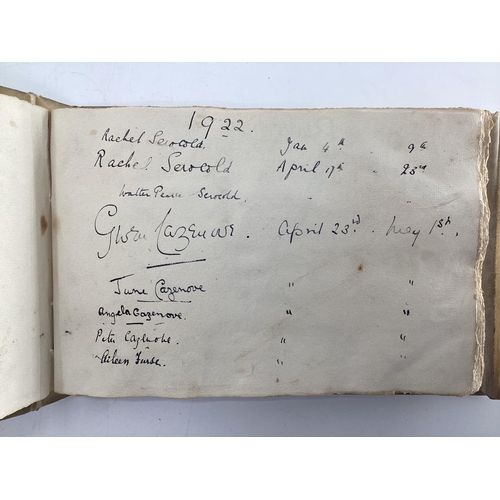 1922.
Rachel Serocold. Jan 4th . 9th
Rachel Serocold April 17th . 23rd
Walter Pearce Serocold. " "
Gwen Cazenove. April 23rd . May 1st.
June Cazenove " "
Angela Cazenove. " "
Peter Cazenove. " "
Aileen Furse. " "